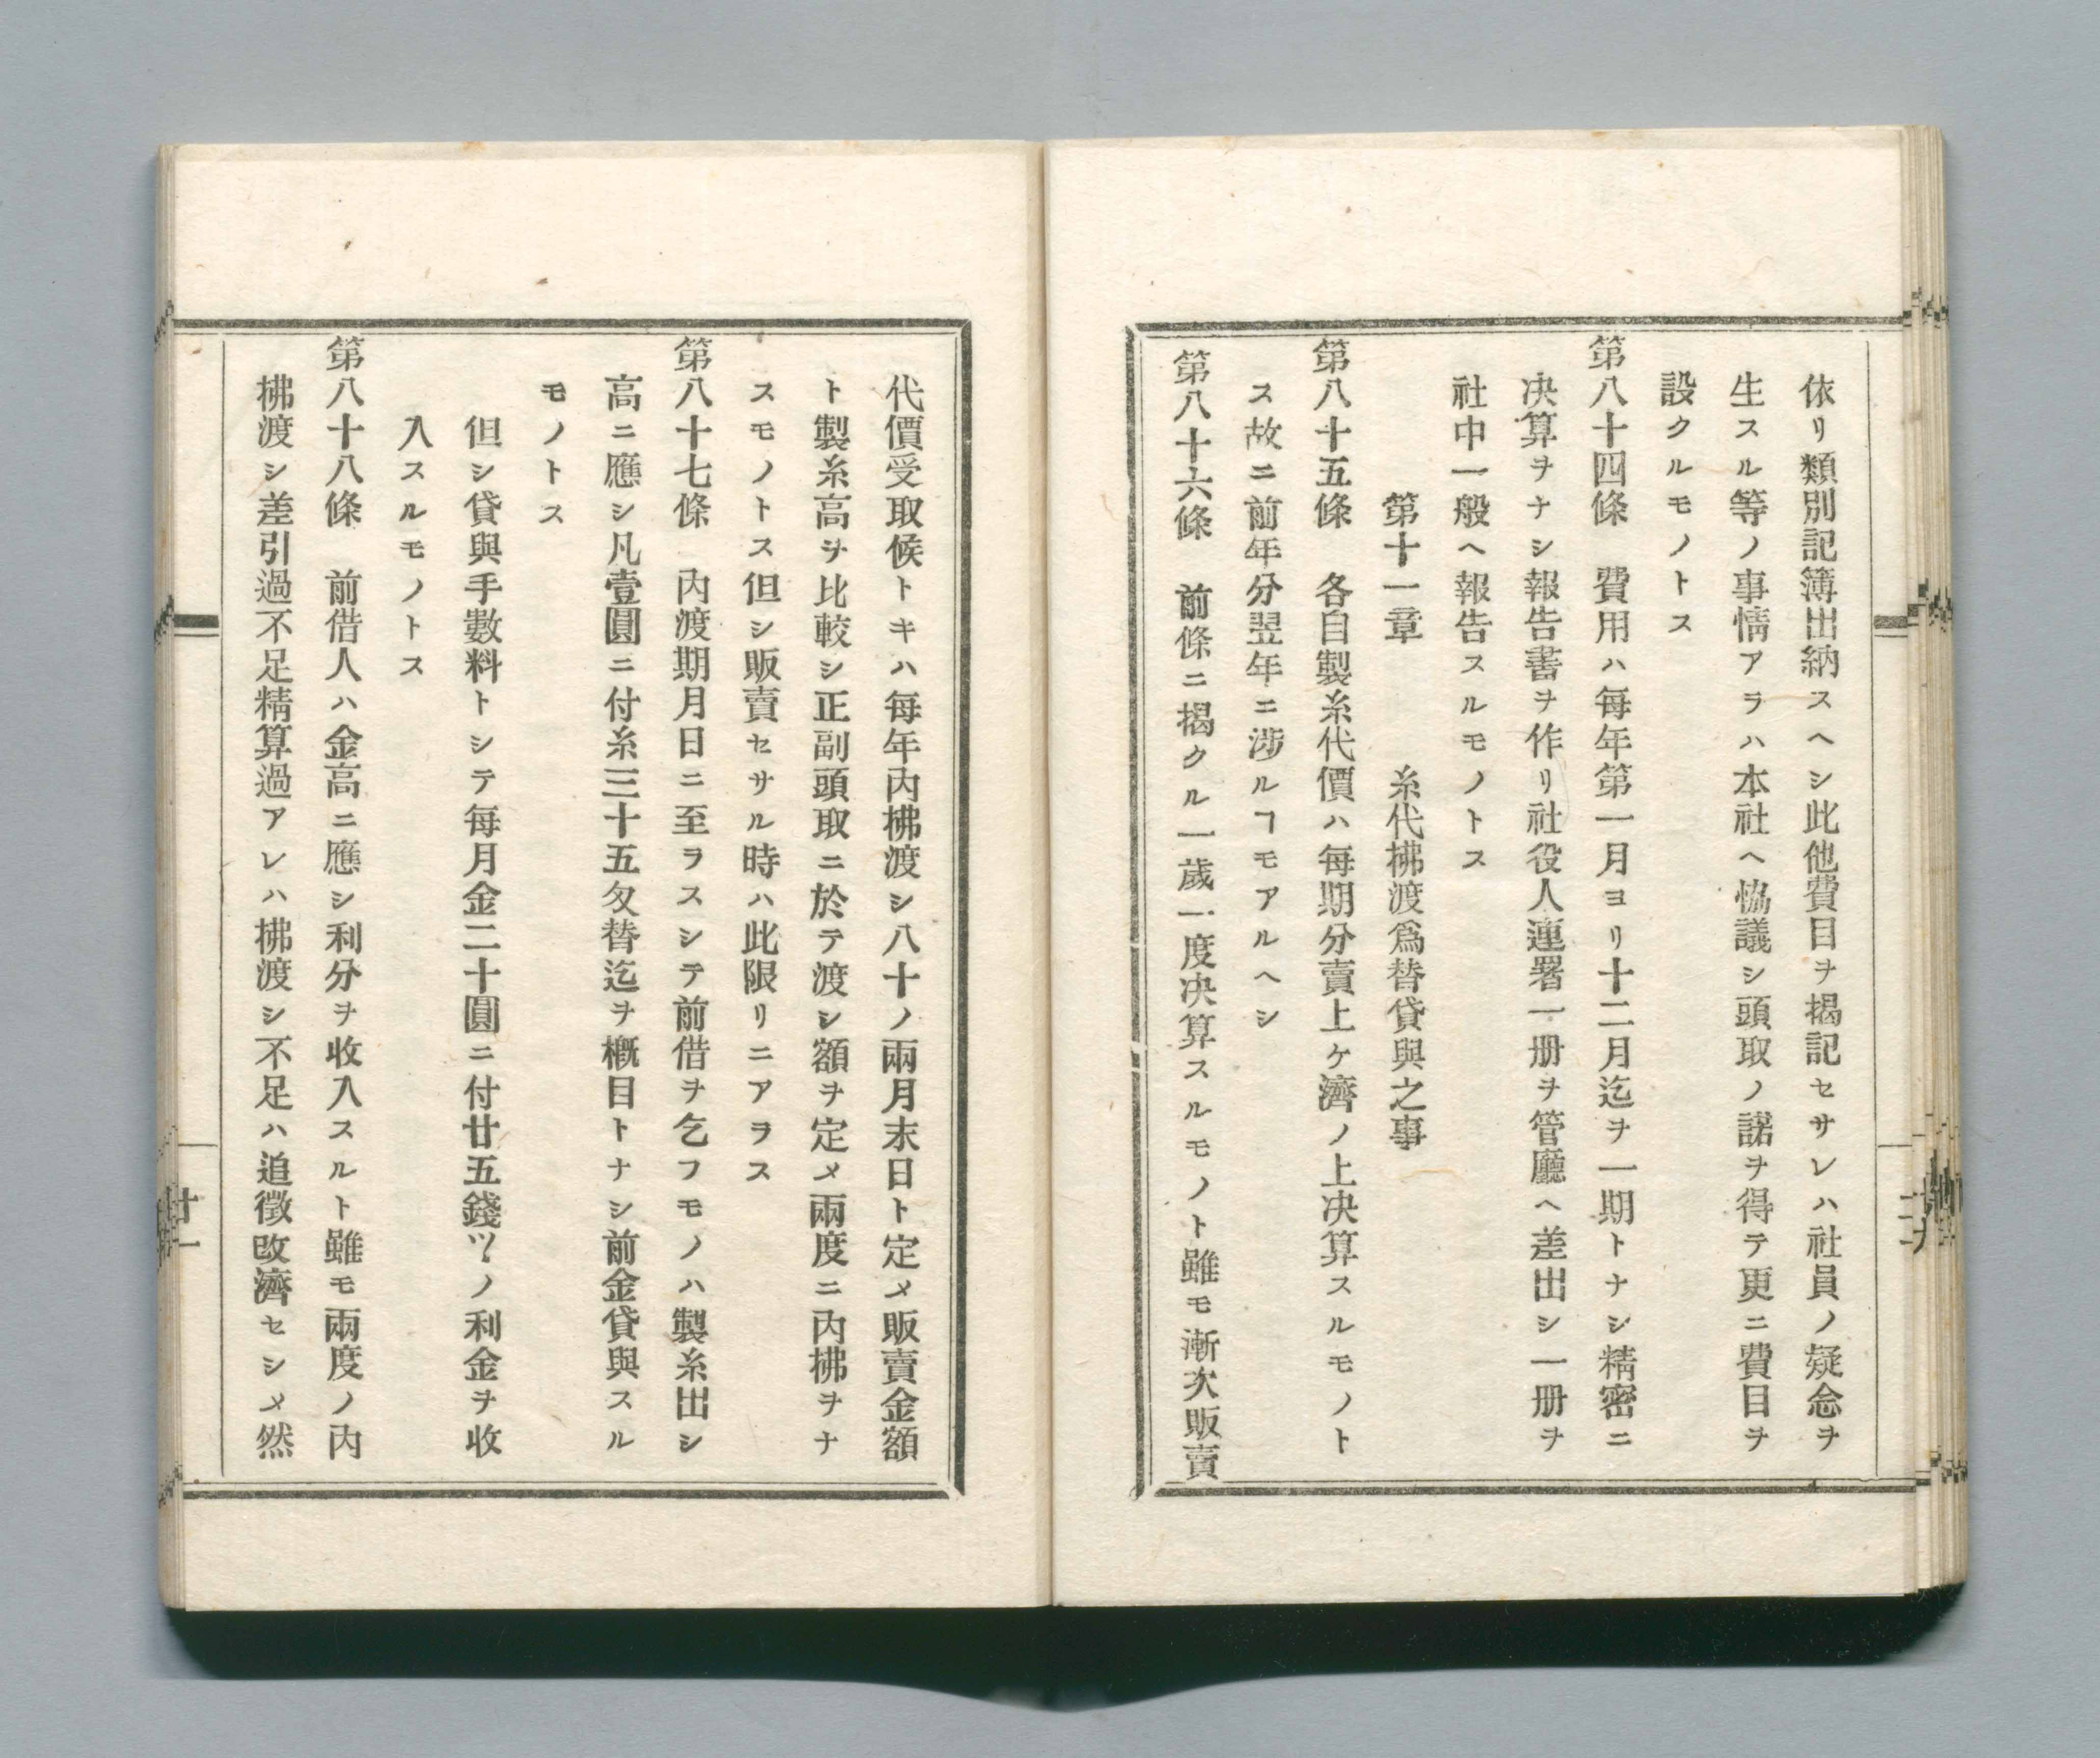 依リ類別記簿出納スヘシ此他費目ヲ揭記セサレハ社員ノ疑念ヲ
生スル等ノ事情アラハ本社ヘ恊議シ頭取ノ諾ヲ得テ更ニ費目ヲ
設クルモノトス
第八十四條　費用ハ每年第一月ヨリ十二月迄ヲ一期トナシ精密ニ
决算ヲナシ報告書ヲ作リ社役人連署一册ヲ管廳ヘ差出シ一册ヲ
社中一般ヘ報告スルモノトス
第十一章　　　糸代拂渡爲替貸與之事
第八十五條　各自製糸代價ハ每期分賣上ケ濟ノ上决算スルモノト
ス故ニ前年分翌年ニ涉ルヿモアルヘシ
第八十六條　前條ニ揭クル一歲一度决算スルモノト雖モ漸次販賣
代價受取候トキハ每年內拂渡シ八十ノ兩月末日ト定メ販賣金額
ト製糸高ヲ比較シ正副頭取ニ於テ渡シ額ヲ定メ兩度ニ內拂ヲナ
スモノトス但シ販賣セサル時ハ此限リニアラス
第八十七條　內渡期月日ニ至ラスシテ前借ヲ乞フモノハ製糸出シ
高ニ應シ凡壹圓ニ付糸三十五匁替迄ヲ槪目トナシ前金貸與スル
モノトス
但シ貸與手數料トシテ每月金二十圓ニ付廿五錢ツヽノ利金ヲ收
入スルモノトス
第八十八條　前借人ハ金高ニ應シ利分ヲ收入スルト雖モ兩度ノ內
拂渡シ差引過不足精算過アレハ拂渡シ不足ハ追徵改濟セシメ然
廿一